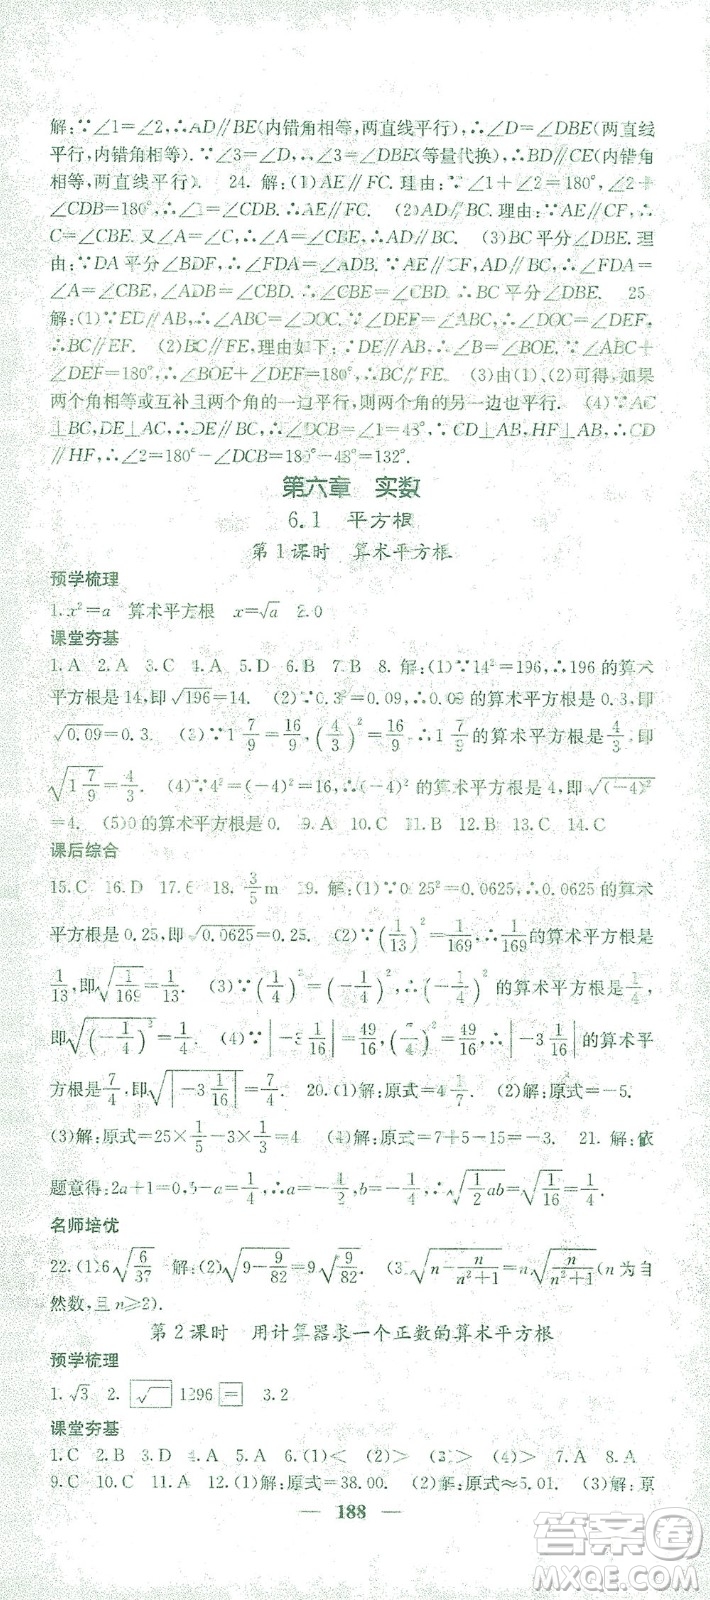 解:∵∠1=∠2,∴AD∥BE(内错角相等,两直线平行),∴∠D=∠DBE(两直线
平行,内错角相等).∵∠3=∠D,∴∠3=∠DBE(等量代换),∴BD∥CE(内错角
相等,两直线平行). 24. 解:(1)AE∥FC. 理由:∵∠1+∠2=180°,∠2+
∠CDB=180°,∴∠1=∠CDB.∴AE∥FC. (2)AD∥BC. 理由:∵AE∥CF,∴
∠C=∠CBE. 又∠A=∠C,∴∠A=∠CBE.∴AD∥BC. (3)BC平分∠DBE. 理
由:∵DA平分∠BDF,∴∠FDA=∠ADB.∵AE∥CF,AD∥BC,∴∠FDA=
∠A=∠CBE,∠ADB=∠CBD.∴∠CBE=∠CBD.∴BC平分∠DBE. 25.
解:(1)∵ED∥AB,∴∠ABC=∠DOC.∵∠DEF=∠ABC,∴∠DEF=∠DOC.
∴BC∥EF. (2)BC∥FE,理由如下:∵DE∥AB,∴∠B=∠BOE.∵∠ABC+
∠DEF=180°,∴∠BOE+∠DEF=180°.∴BC∥FE. (3)由(1)、(2)可得,如果
两个角相等或互补且两个角的一边平行,则两个角的另一边也平行. (4)∵AC
⊥BC,DE⊥AC,∴DE∥BC,∴∠DCB=∠1=48°,∵CD⊥AB,HF⊥AB,∴CD
∥HF,∴∠2=180°-∠DCB=180°-48°=132°.
第六章 实数
6.1 平方根
第1课时 算术平方根
预学梳理
1.x²=a 算术平方根 x=√a 2.0
课堂夯基
1.A 2.A 3.A 4.A 5.D 6.B 7.B 8. 解:(1)∵14²=196,∴196的算术
平方根是14,即√196=14. (2)∵0.3²=0.09,∴0.09的算术平方根是0.3,即
√0.09=0.3. (3)∵1 7/9=16/9,(4/3)²=16/9,∴1 7/9的算术平方根是4/3,即
√(1 7/9)=4/3. (4)∵4²=(-4)²=16,∴(-4)²的算术平方根是4,即√((-4)²)
=4. (5)0的算术平方根是0. 9.A 10.C 11.B 12.C 13.A 14.C
课后综合
15.C 16.D 17.6 18.3/5 m 19. 解:(1)∵0.25²=0.0625,∴0.0625的算术
平方根是0.25,即√0.0625=0.25. (2)∵(1/13)²=1/169,∴1/169的算术平方根是
1/13,即√(1/169)=1/13. (3)∵(1/4)²=(-1/4)²,∴(-1/4)²的算术平方根是1/4,
即√((-1/4)²)=1/4. (4)∵|-3 1/16|=49/16,(7/4)²=49/16,∴|-3 1/16|的算术平
方根是7/4,即√|-3 1/16|=7/4. 20.(1)解:原式=4 1/7. (2)解:原式=-5.
(3)解:原式=25×1/5-3×1/3=4. (4)解:原式=7+5-15=-3. 21. 解:依
题意得:2a+1=0,b-5=0,∴a=-1/2,b=
名师培优
22.(1)6√(6/37) 解:(2)√(9-9/82)=9√(9/82). (3)√(n-n/(n²+1))=n√(n/(n²+1))(n为自
然数,且n≥2).
第2课时 用计算器求一个正数的算术平方根
预学梳理
1.√3 2. √ 1296 = 3.2
课堂夯基
1.C 2.B 3.D 4.A 5.C 6.(1)< (2)> (3)> (4)> 7.A 8.A
9.C 10.C 11.A 12.(1)解:原式=38.00. (2)解:原式≈5.01. (3)解:原
188
答案圈
MXQE.COM